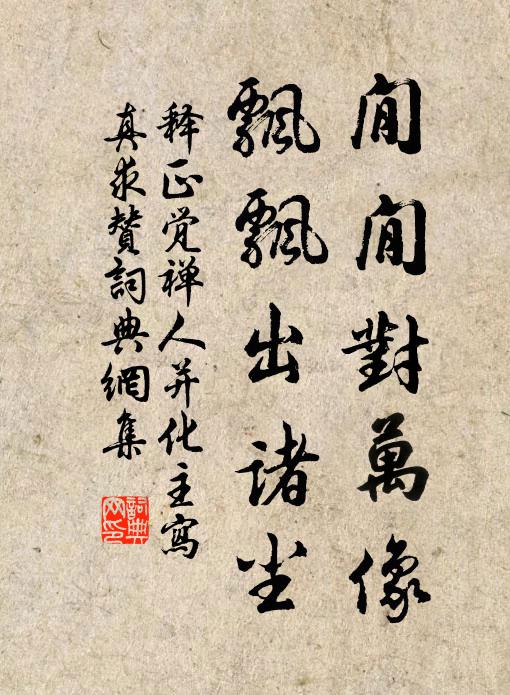 閒閒對萬像
飄飄出諸尘
释正觉禅人并化主寫
真求贊詞典網集
詞典网印